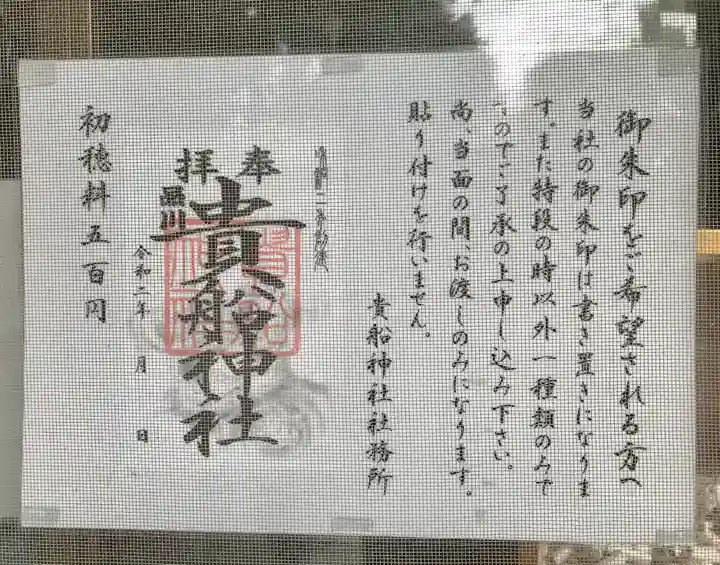 御朱印をご希望される方へ
当社の御朱印は書き置きになりま
す。また特段の時以外一種類のみで
すのでご了承の上申し込み下さい。
尚、当面の間、お渡しのみになります。
貼り付けを行いません。
貴船神社社務所
奉拝
品川
貴船神社
令和二年 月 日
初穂料五百円